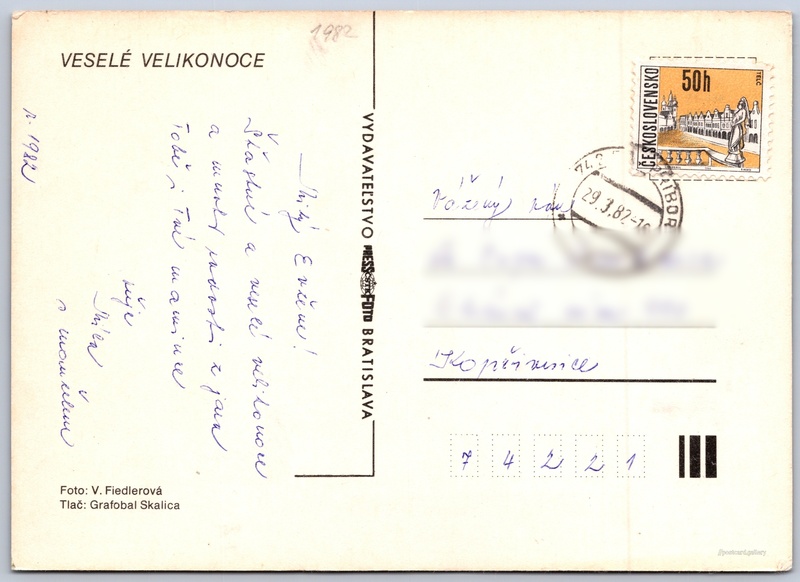 1982
VESELÉ VELIKONOCE
r. 1982
Milý Evžene!
Šťastné a veselé velikonoce
a mnoho radosti z jara
Tobě i Tvé mamince
přeje
Míla
s manželem
Foto: V. Fiedlerová
Tlač: Grafobal Skalica
VYDAVATEĽSTVO PRESSFOTO BRATISLAVA
ČESKOSLOVENSKO
50h
TELČ
PŘÍBOR
29.3.82
Vážený pan
Kopřivnice
7 4 2 2 1
//postcard.gallery